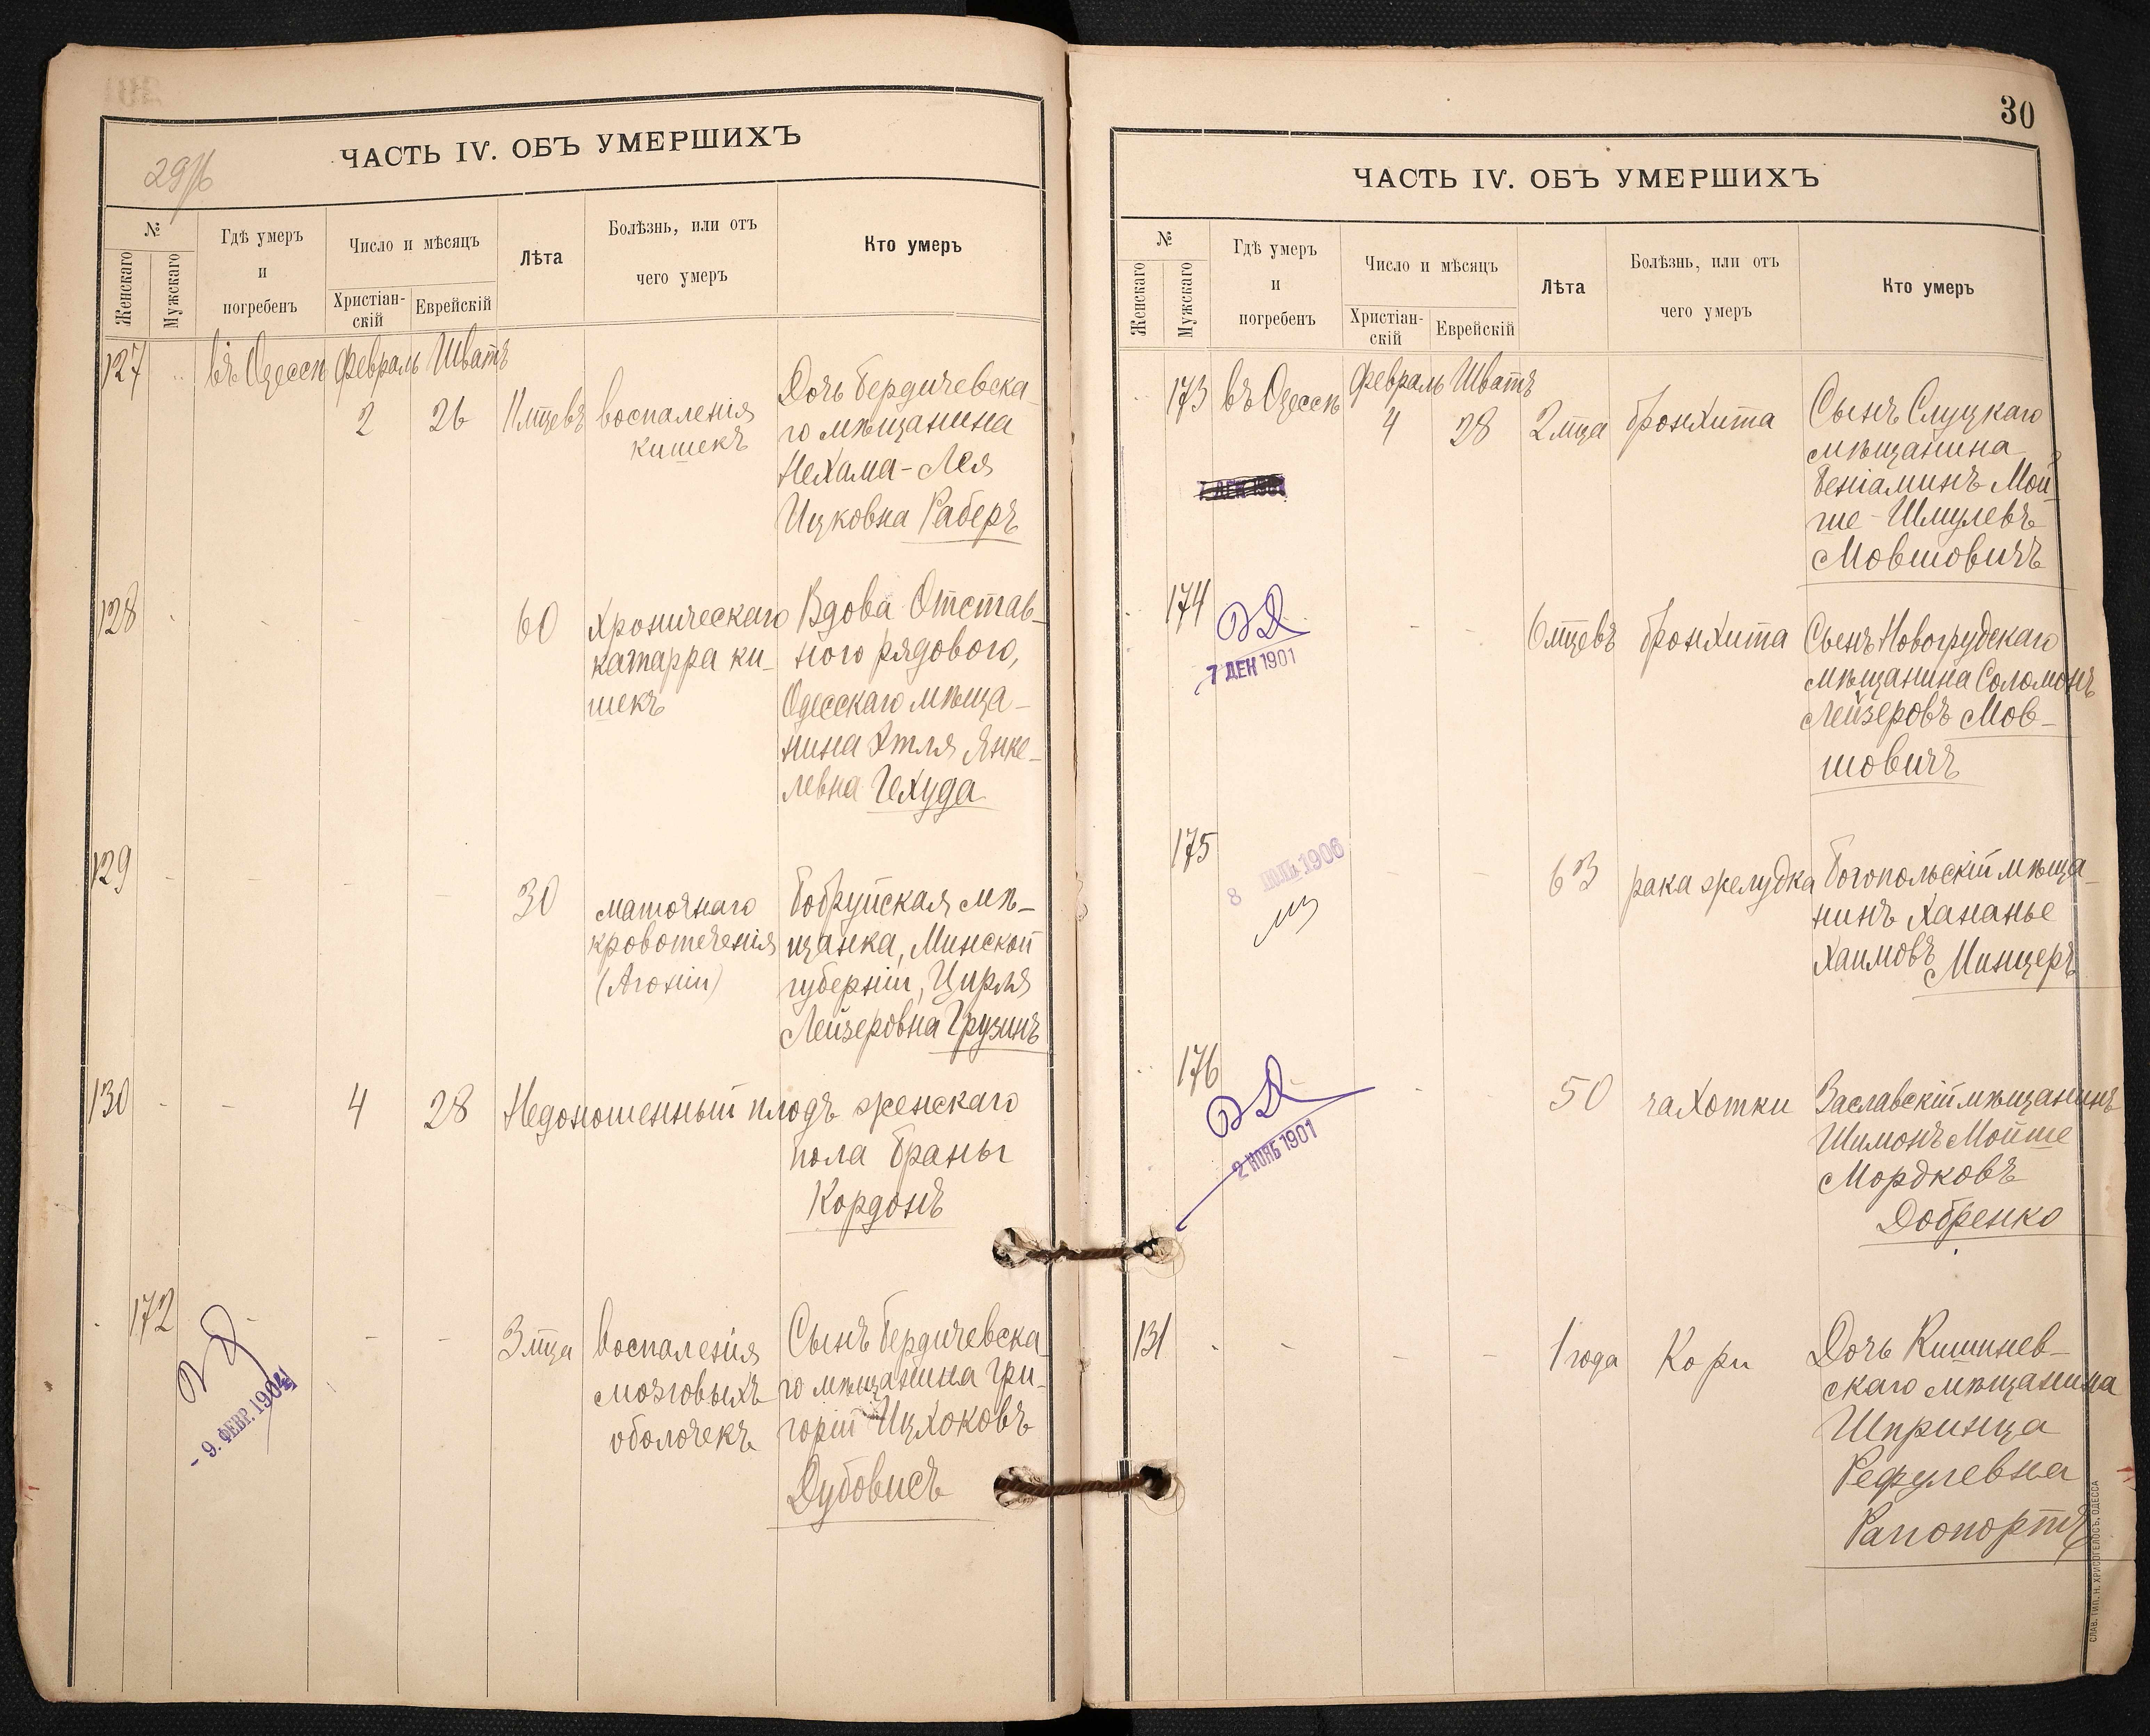 ЧАСТЬ IV. ОБЪ УМЕРШИХЪ
№
Женскаго
Мужскаго
Гдѣ умеръ
и
погребенъ
Число и мѣсяцъ
Христіан-
скій
Еврейскій
Лѣта
Болѣзнь, или отъ
чего умеръ
Кто умеръ
127
въ Одессѣ
Февраль
Шватъ
2
26
11 мцевъ
воспаленія
кишекъ
Дочь Бердичевска-
го мѣщанина
Нехама-Лея
Ицковна Раберъ
128
60
хроническаго
катарра ки-
шекъ
Вдова Отстав-
ного рядового,
Одесскаго мѣща-
нина Этля Янке-
левна Гехуда
129
30
маточнаго
кровотеченія
(Агоніи)
Бобруйская мѣ-
щанка, Минской
губерніи, Цирля
Лейзеровна Грузинъ
130
4
28
Недоношенный плодъ женскаго
пола Браны
Кордонъ
172
- 9. ФЕВР. 1904
3 мца
воспаленія
мозговыхъ
оболочекъ
Сынъ Бердичевска-
го мѣщанина Гри-
горій Ицхоковъ
Дубовисъ
30
ЧАСТЬ IV. ОБЪ УМЕРШИХЪ
№
Женскаго
Мужскаго
Гдѣ умеръ
и
погребенъ
Число и мѣсяцъ
Христіан-
скій
Еврейскій
Лѣта
Болѣзнь, или отъ
чего умеръ
Кто умеръ
173
въ Одессѣ
Февраль
Шватъ
4
28
2 мца
бронхита
Сынъ Слуцкаго
мѣщанина
Беніаминъ Мой-
ше-Шмулевъ
Мовшовичъ
174
7 ДЕК 1901
6 мцевъ
бронхита
Сынъ Новогрудскаго
мѣщанина Соломонъ
Лейзеровъ Мов-
шовичъ
175
8 1906
63
рака желудка
Богопольскій мѣща-
нинъ Хананье
Хаимовъ Минцеръ
176
2 НОЯБ 1901
50
чахотки
Заславскій мѣщанинъ
Шимонъ Мойше
Мордковъ
Добренко
131
1 года
Кори
Дочь Кишинев-
скаго мѣщанина
Шпринца
Рефулевна
Рапопортъ
СЛАВ. ТИП. Н. ХРИСОГЕЛОСЪ, ОДЕССА